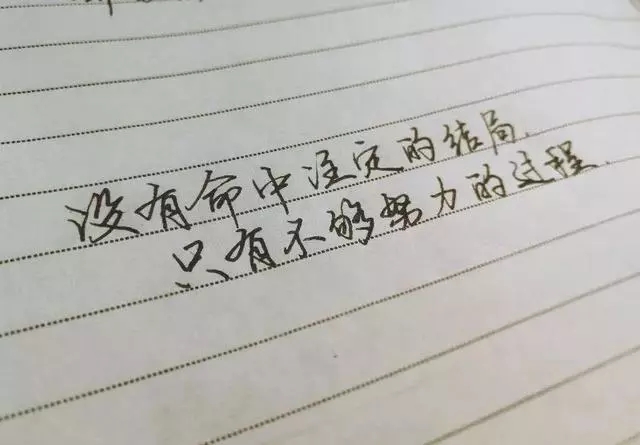 没有命中注定的结局.
只有不够努力的过程.